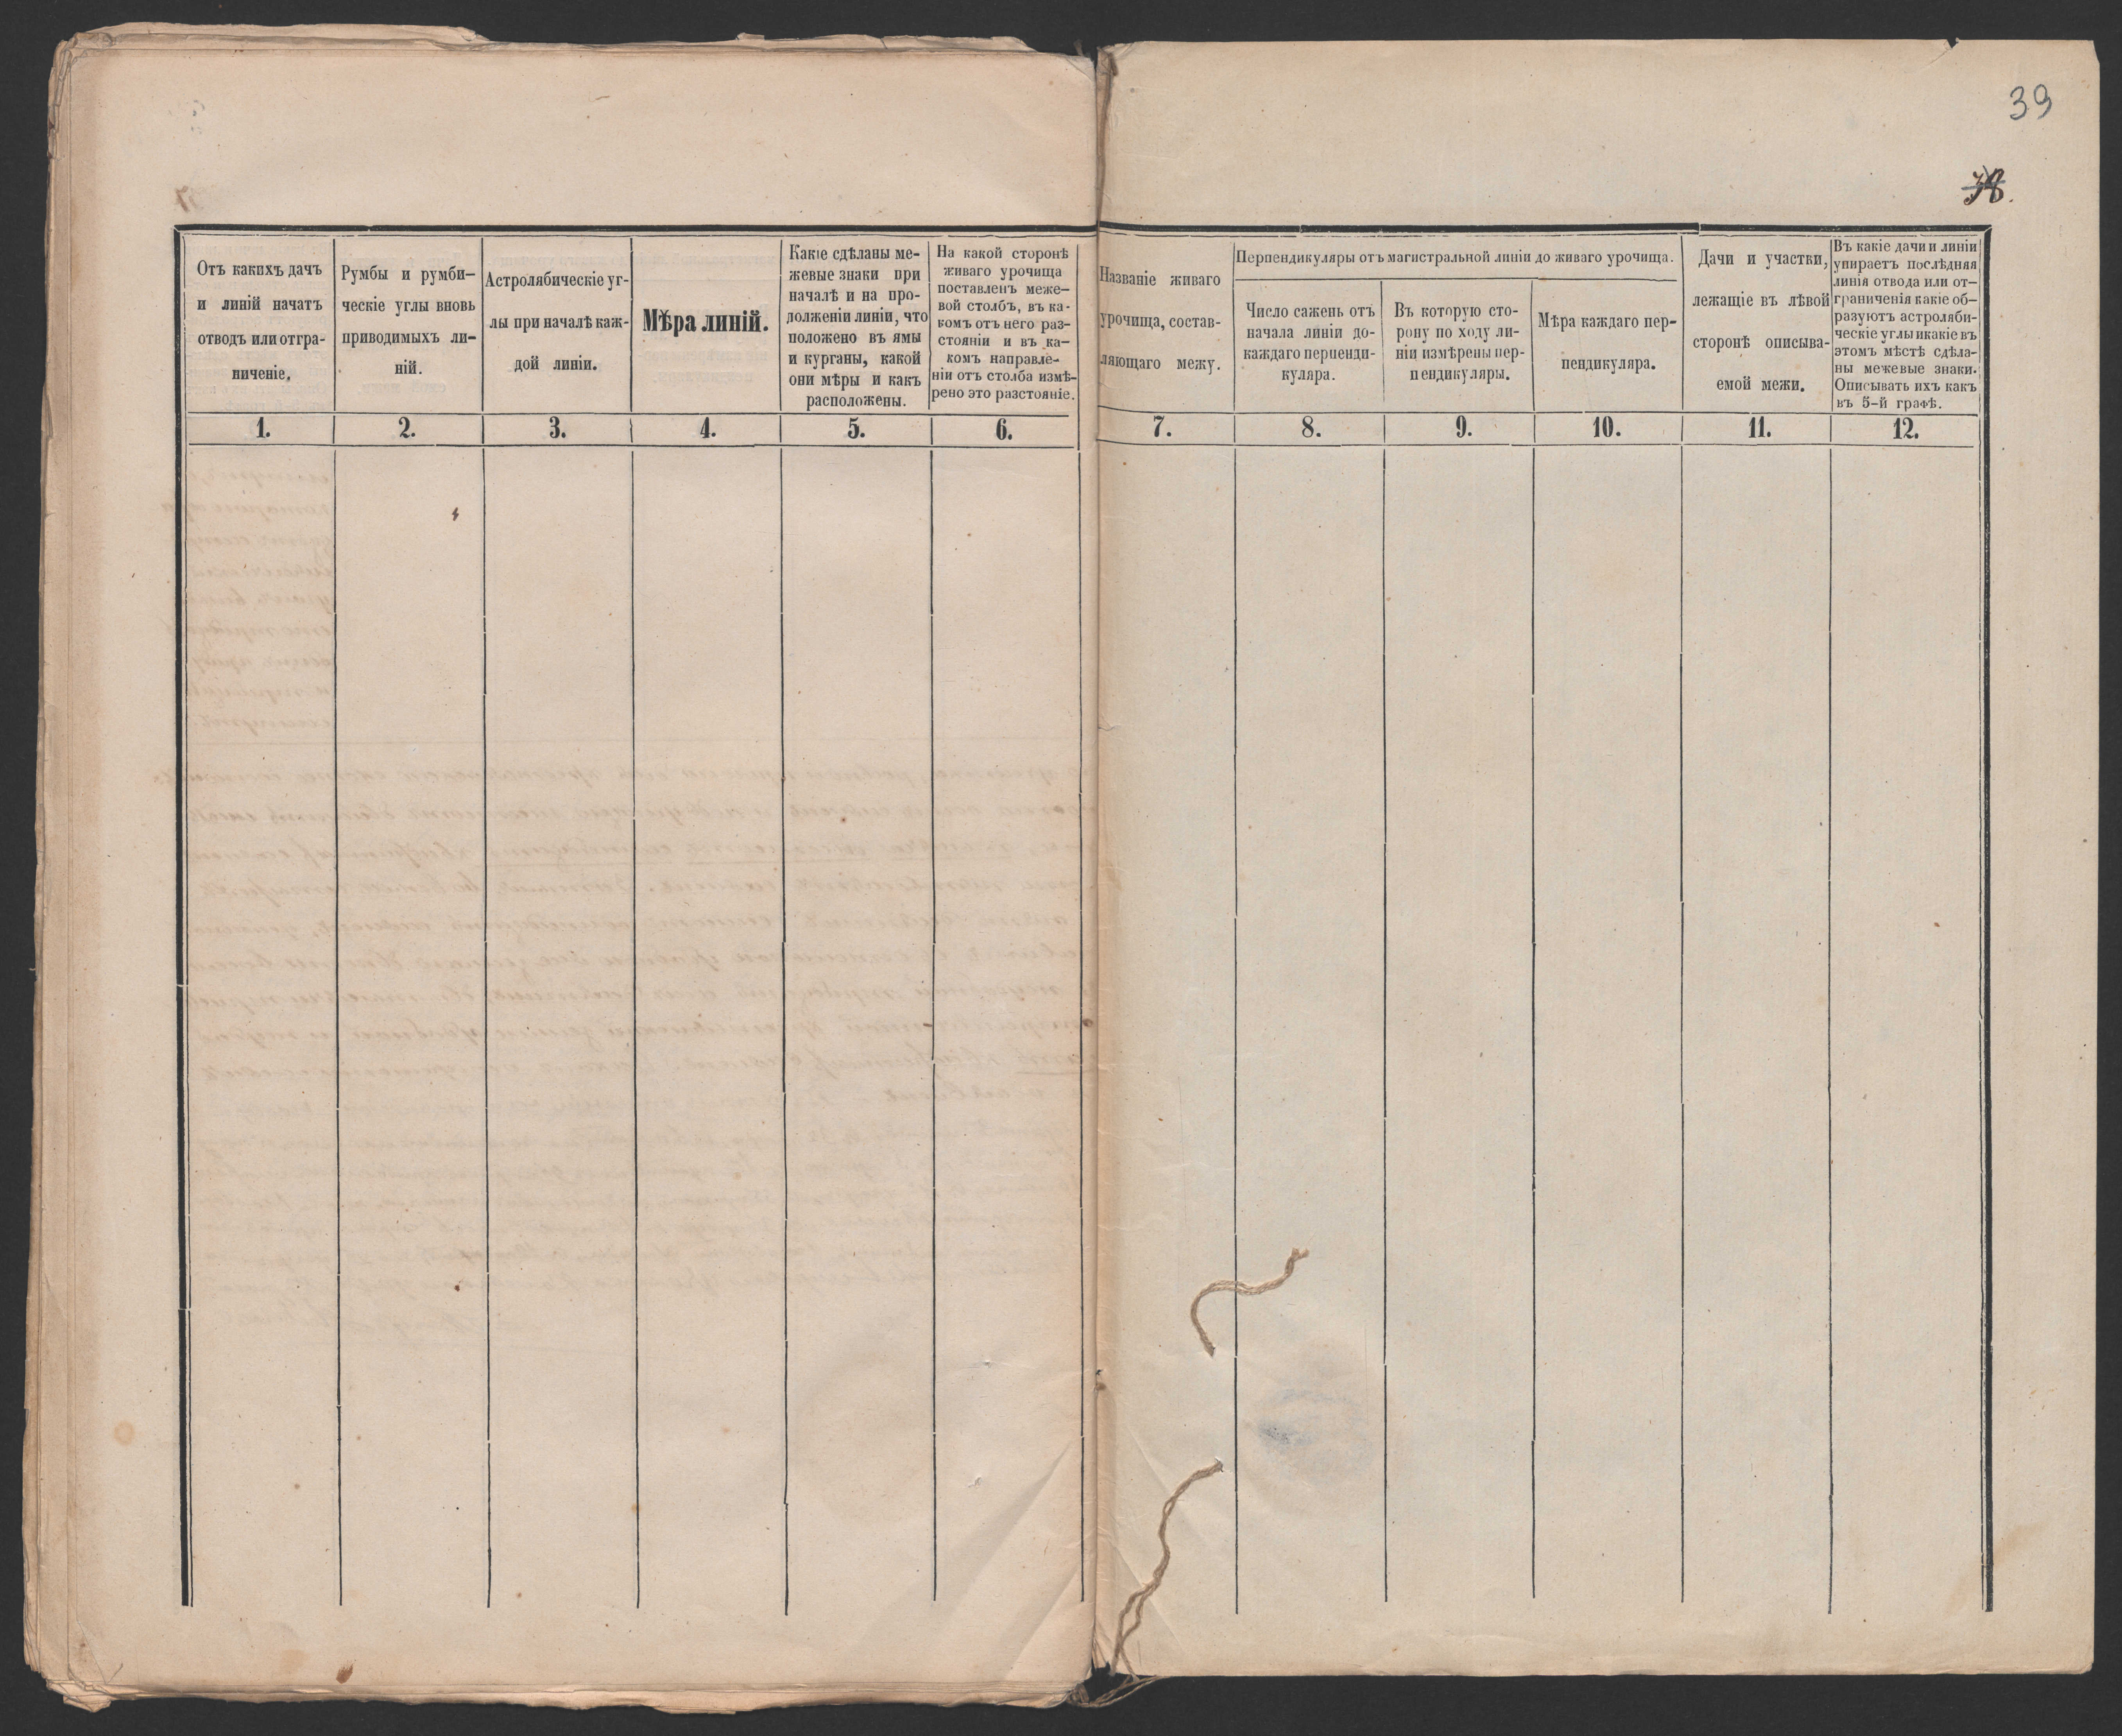 39
38.
Отъ какихъ дачъ
и линій начатъ
отводъ или отгра-
ниченіе.
Румбы и румби-
ческіе углы вновь
приводимыхъ ли-
ній.
Астролябическіе уг-
лы при началѣ каж-
дой линіи.
Мѣра линій.
Какіе сдѣланы ме-
жевые знаки при
началѣ и на про-
долженіи линіи, что
положено въ ямы
и курганы, какой
они мѣры и какъ
расположены.
На какой сторонѣ
живаго урочища
поставленъ меже-
вой столбъ, въ ка-
комъ отъ него раз-
стояніи и въ ка-
комъ направле-
ніи отъ столба измѣ-
рено это разстояніе.
Названіе живаго
урочища, состав-
ляющаго межу.
Перпендикуляры отъ магистральной линіи до живаго урочища.
Число сажень отъ
начала линіи до-
каждаго перпенди-
куляра.
Въ которую сто-
рону по ходу ли-
ніи измѣрены пер-
пендикуляры.
Мѣра каждаго пер-
пендикуляра.
Дачи и участки,
лежащіе въ лѣвой
сторонѣ описыва-
емой межи.
Въ какіе дачи и линіи
упираетъ послѣдняя
линія отвода или от-
граниченія какіе об-
разуютъ астроляби-
ческіе углы и какіе въ
этомъ мѣстѣ сдѣла-
ны межевые знаки.
Описывать ихъ какъ
въ 5-й графѣ.
1. 2. 3. 4. 5. 6. 7. 8. 9. 10. 11. 12.